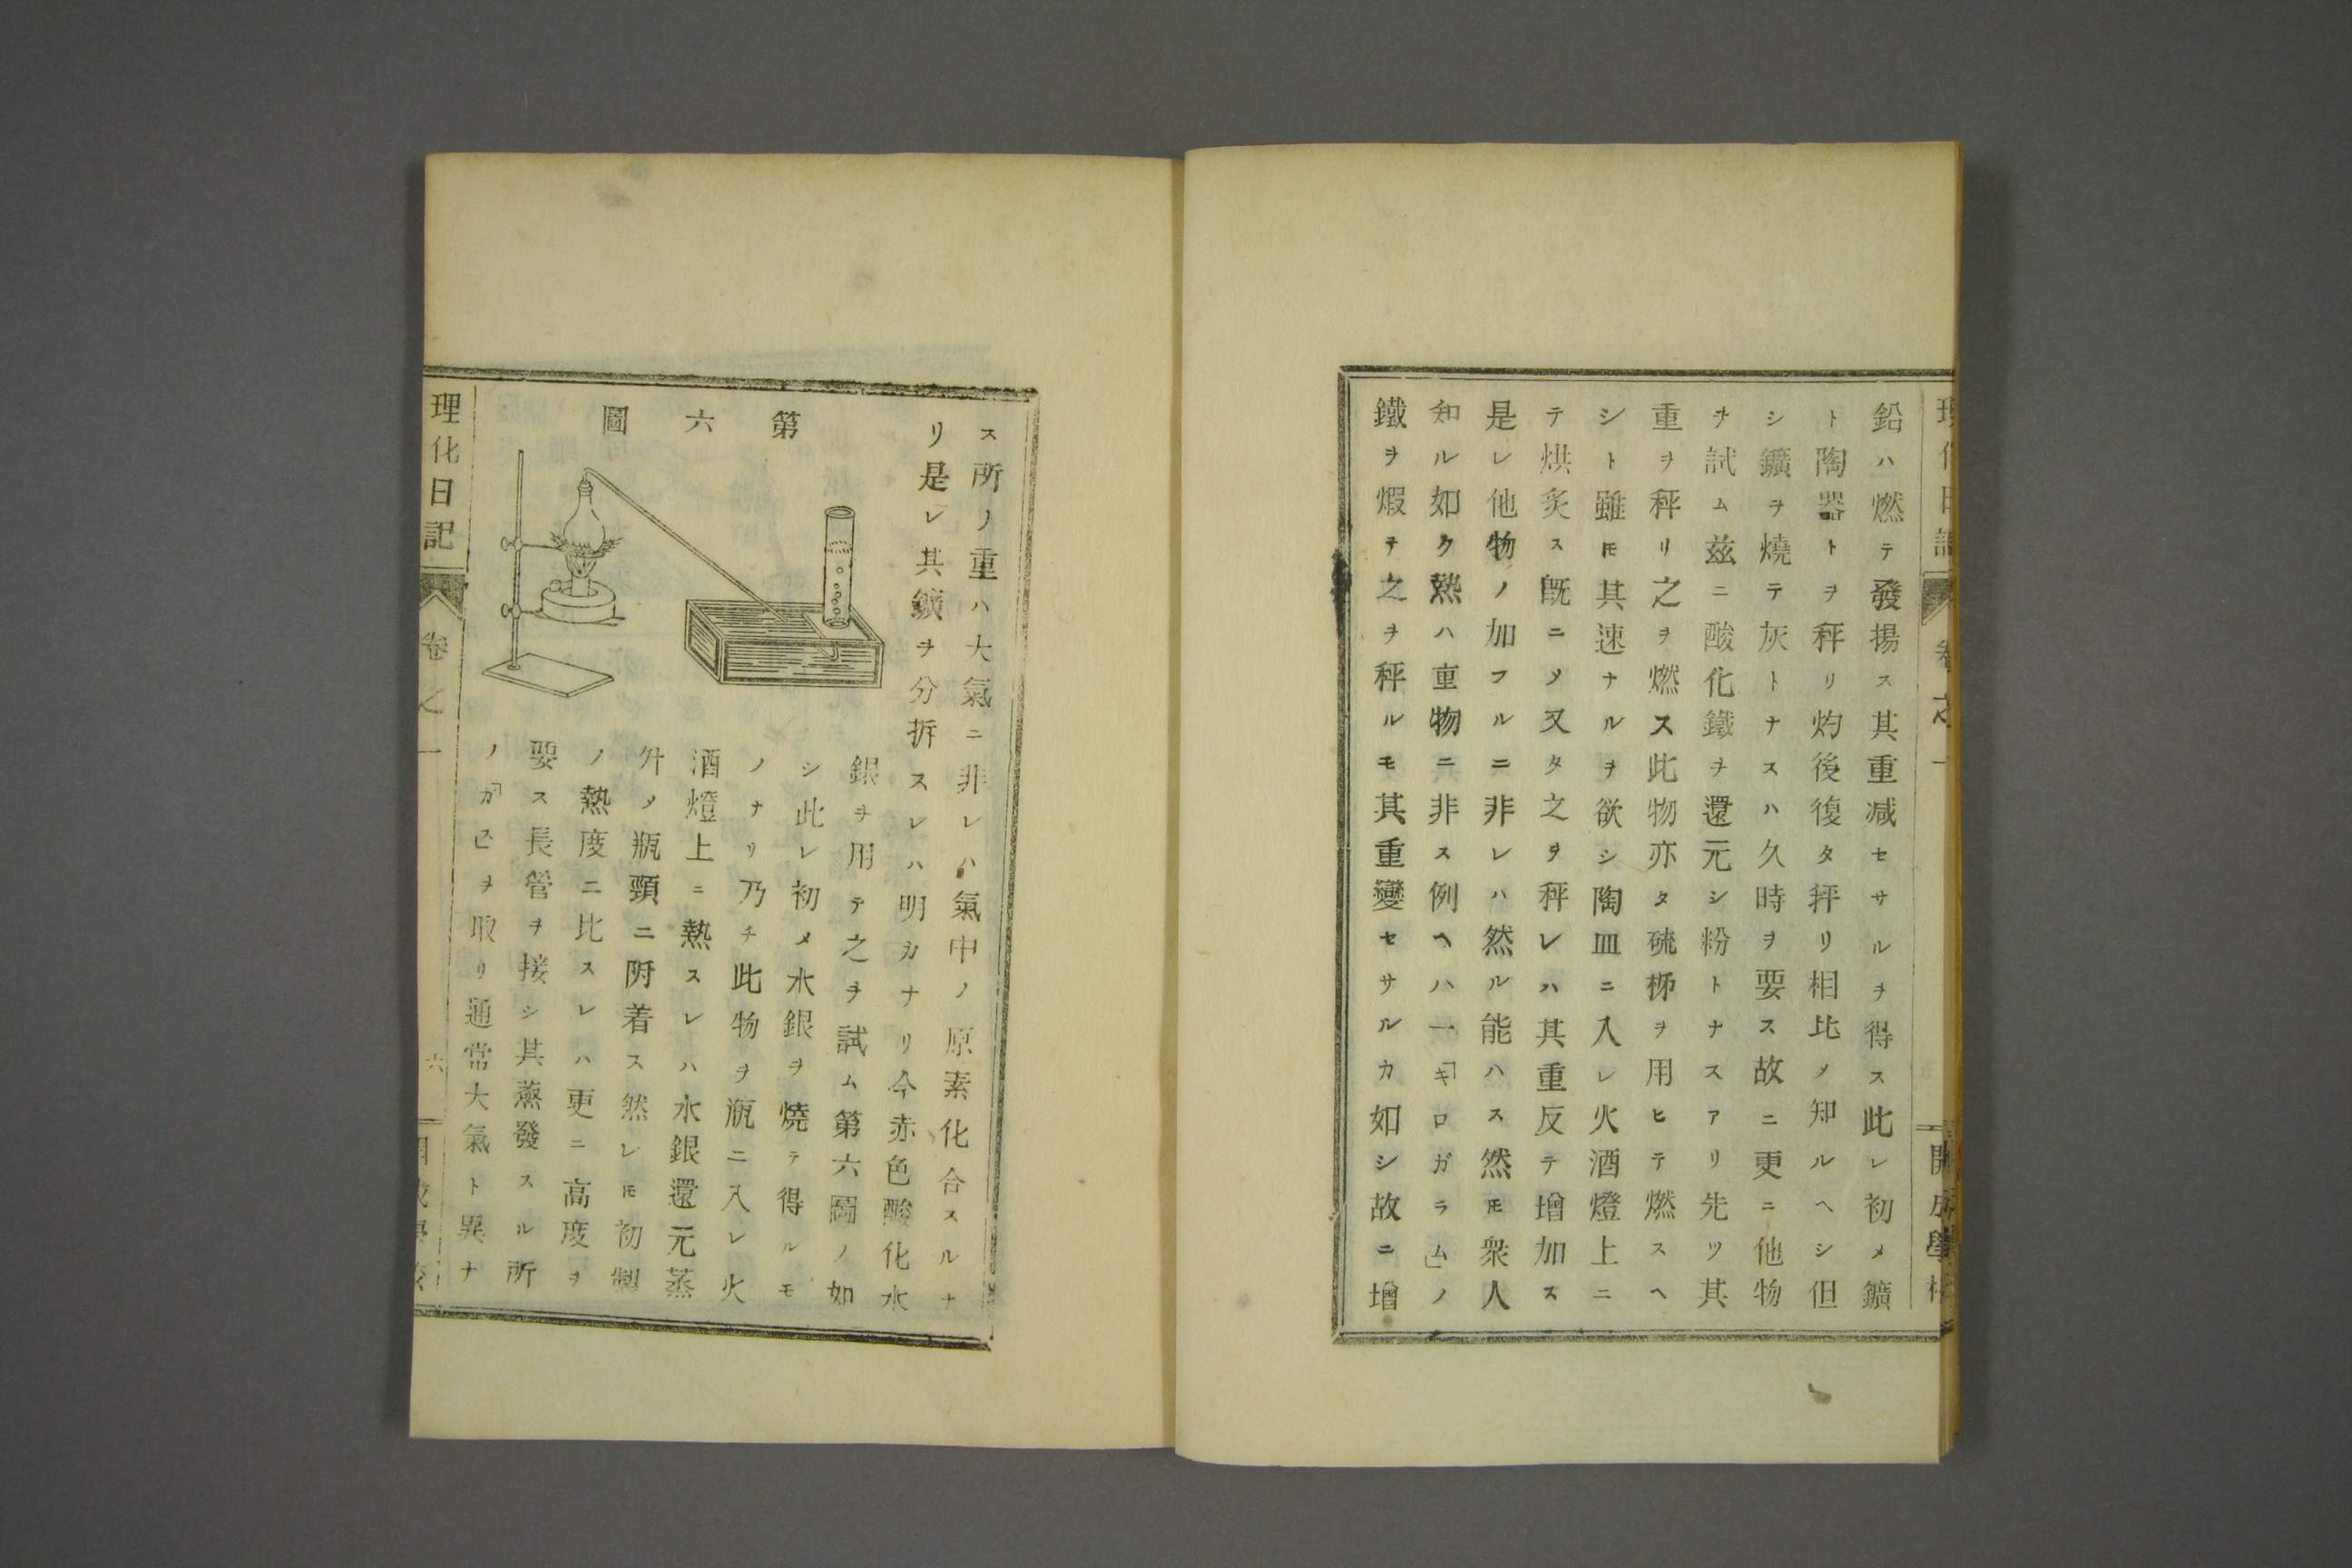 鉛ハ燃テ發揚ス其重減セサルヲ得ス此レ初メ鑛
ト陶器トヲ秤リ灼後復タ秤リ相比メ知ルヘシ但
シ鑛ヲ燒テ灰トナスハ久時ヲ要ス故ニ更ニ他物
ヲ試ム茲ニ酸化鐵ヲ還元シ粉トナスアリ先ツ其
重ヲ秤リ之ヲ燃ス此物亦タ硫栁ヲ用ヒテ燃スヘ
シト雖𪜈其速ナルヲ欲シ陶皿ニ入レ火酒燈上ニ
テ烘炙ス既ニメ又タ之ヲ秤レハ其重反テ增加ス
是レ他物ノ加フルニ非レハ然ル能ハス然𪜈衆人
知ル如ク熱ハ重物ニ非ス例ヘハ一「キロガラム」ノ
鐵ヲ煆テ之ヲ秤ルモ其重變セサルカ如シ故ニ增
ス所ノ重ハ大氣ニ非レハ氣中ノ原素化合スルナ
リ是レ其鑛ヲ分拆スレハ明カナリ今赤色酸化水
第六圖
銀ヲ用テ之ヲ試ム第六圖ノ如
シ此レ初メ水銀ヲ燒テ得ルモ
ノナリ乃チ此物ヲ瓶ニ入レ火
酒燈上ニ熱スレハ水銀還元蒸
升メ瓶頸ニ附着ス然レ𪜈初製
ノ熱度ニ比スレハ更ニ高度ヲ
要ス長管ヲ接シ其蒸發スル所
ノ「ガ」ヲ取リ通常大氣ト異ナ
理化日記
卷之一
六